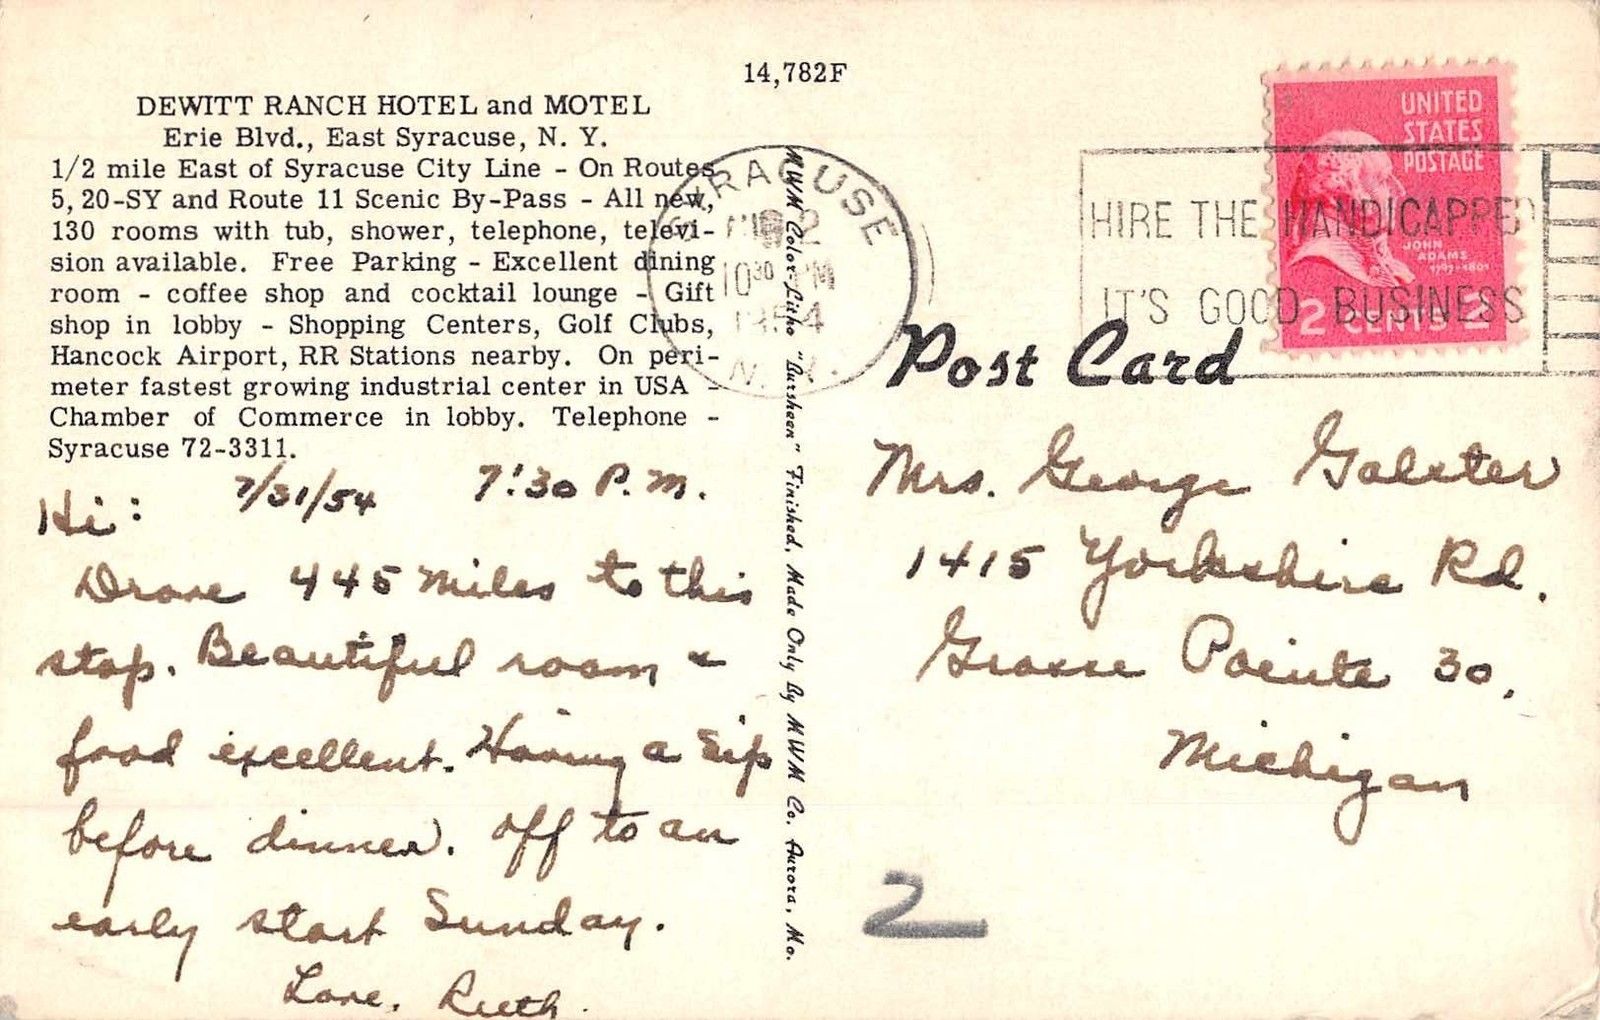 14,782F
DEWITT RANCH HOTEL and MOTEL
Erie Blvd., East Syracuse, N. Y.
1/2 mile East of Syracuse City Line - On Routes
5, 20-SY and Route 11 Scenic By-Pass - All new,
130 rooms with tub, shower, telephone, televi-
sion available. Free Parking - Excellent dining
room - coffee shop and cocktail lounge - Gift
shop in lobby - Shopping Centers, Golf Clubs,
Hancock Airport, RR Stations nearby. On peri-
meter fastest growing industrial center in USA -
Chamber of Commerce in lobby. Telephone -
Syracuse 72-3311.
7/31/54 7:30 P.M.
Hi:
Drove 445 miles to this
stop. Beautiful room &
food excellent. Having a sip
before dinner. Off to an
early start Sunday.
Love, Ruth.
MWM Color-Litho "Bursheen" Finished, Made Only By MWM Co. Aurora, Mo.
SYRACUSE
AUG 2
10 30 PM
1954
N. Y.
HIRE THE HANDICAPPED
IT'S GOOD BUSINESS
UNITED
STATES
POSTAGE
JOHN
ADAMS
1797-1801
2 CENTS 2
Post Card
Mrs. George Galster
1415 Yorkshire Rd.
Grosse Pointe 30,
Michigan
2